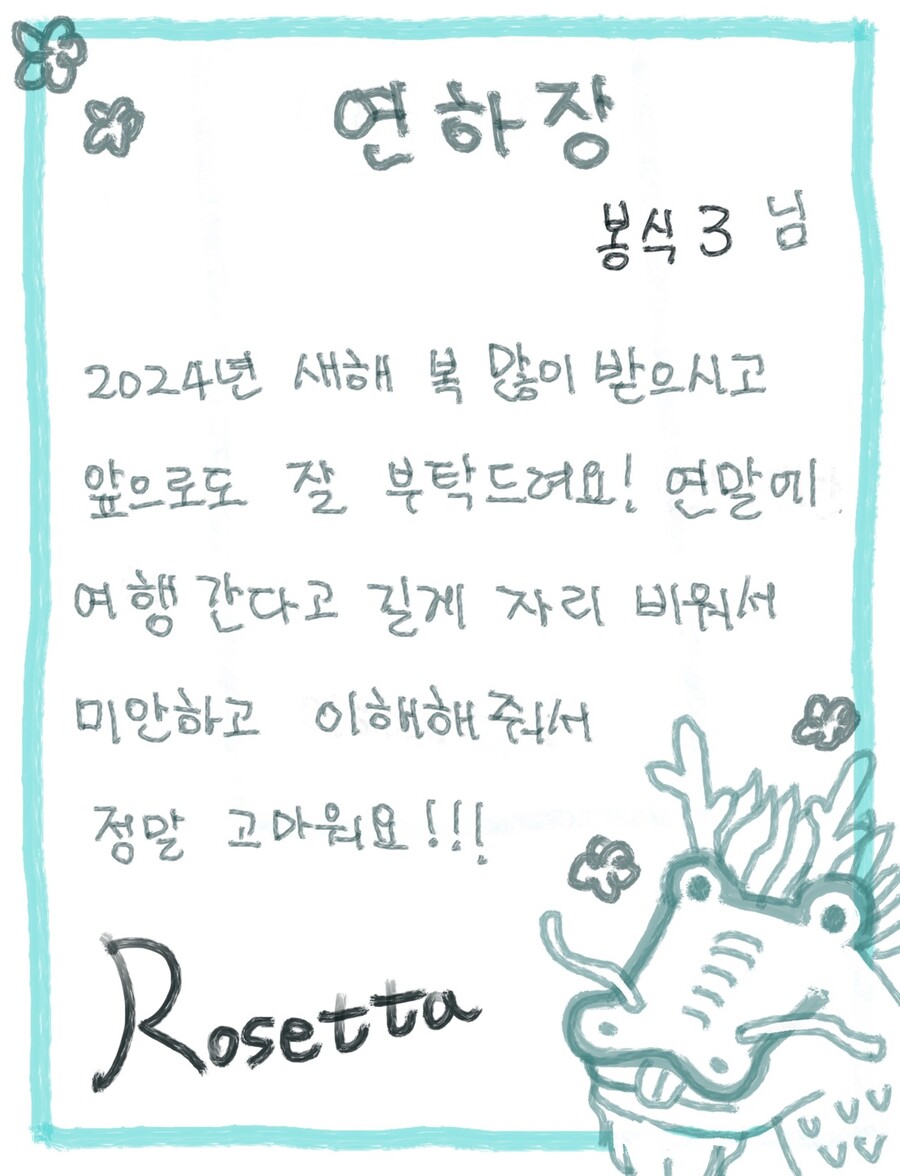 연하장
봉식3 님
2024년 새해 복 많이 받으시고
앞으로도 잘 부탁드려요! 연말에
여행 간다고 길게 자리 비워서
미안하고 이해해줘서
정말 고마워요!!!
Rosetta